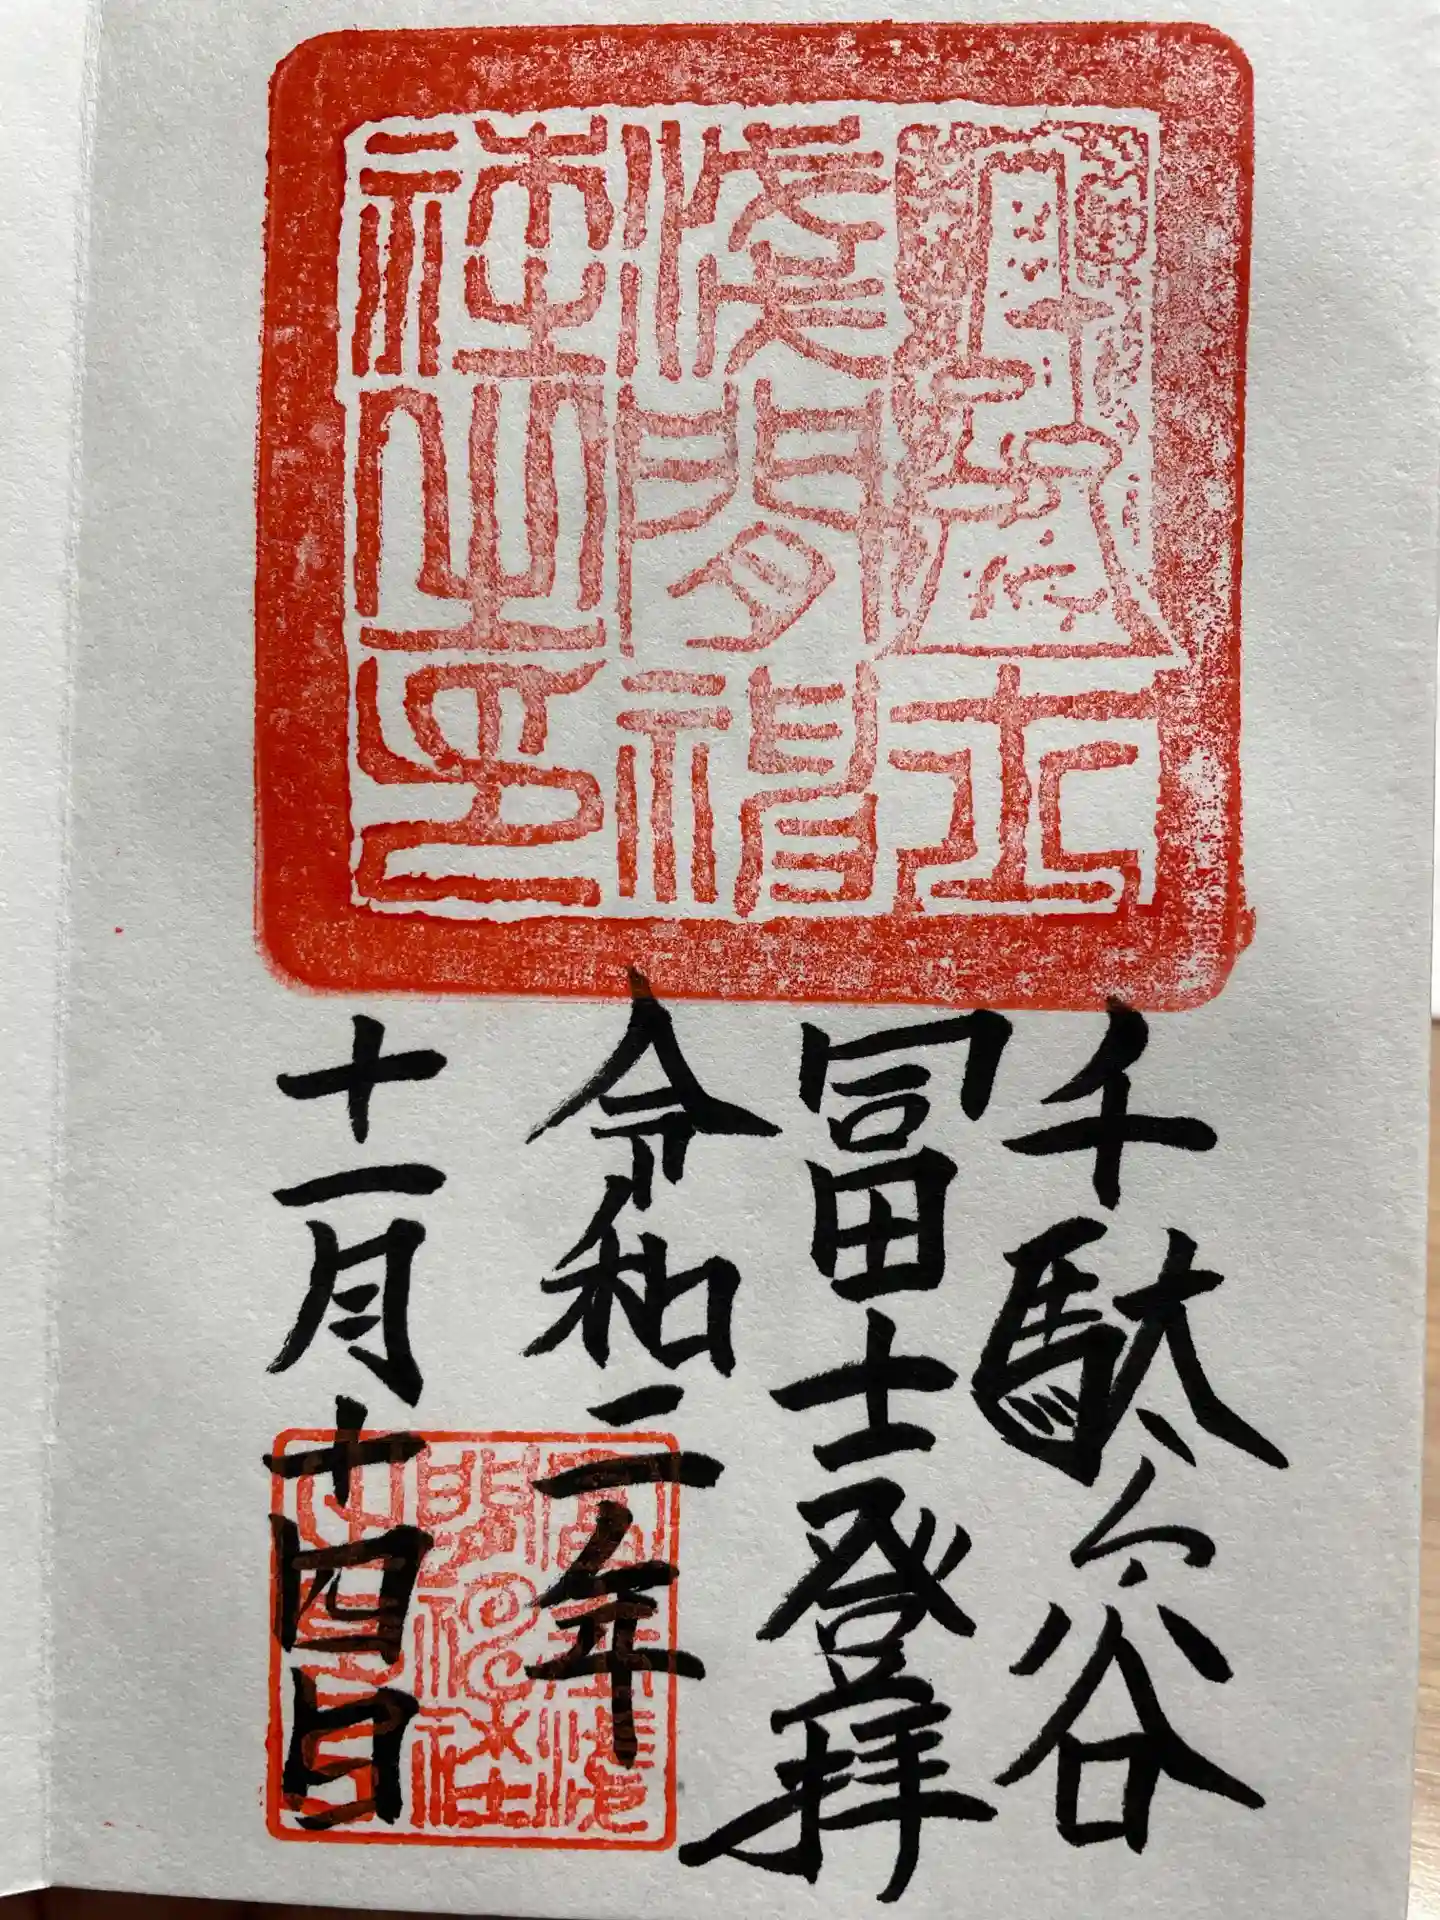 冨士
淺間神
社之印
千駄ヶ谷
冨士登拝
令和二年
十一月十四日